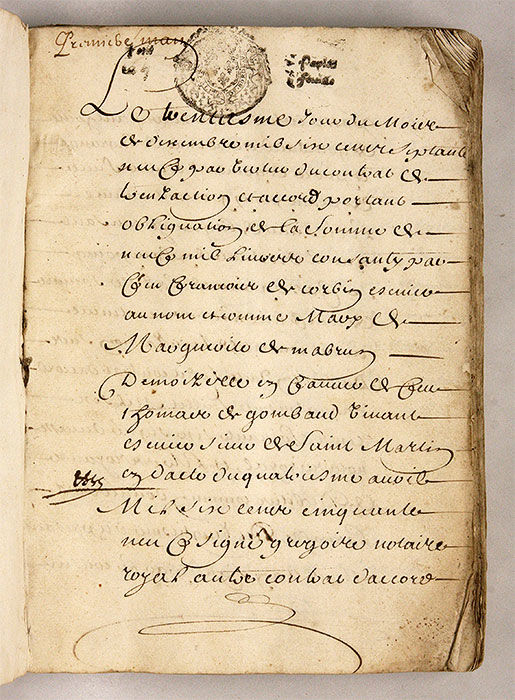 Premiere main
Le trentiesme Jour du Mois
de decembre mil six cens septante
neuf par vertu du contrat de
tranzaction et accord portant
obligation de la somme de
neuf mil livres consanty par
feu Francois de corbie escuier
au nom et comme Mary de
Marguerite de mabrun
Demoizelle en faveur de feu
thomas de gombaud vivant
escuier sieur de Saint Martin
en datte du quatriesme avril
Mil six cens cinquante
neuf signé gregoire notaire
royal autre contrat daccord